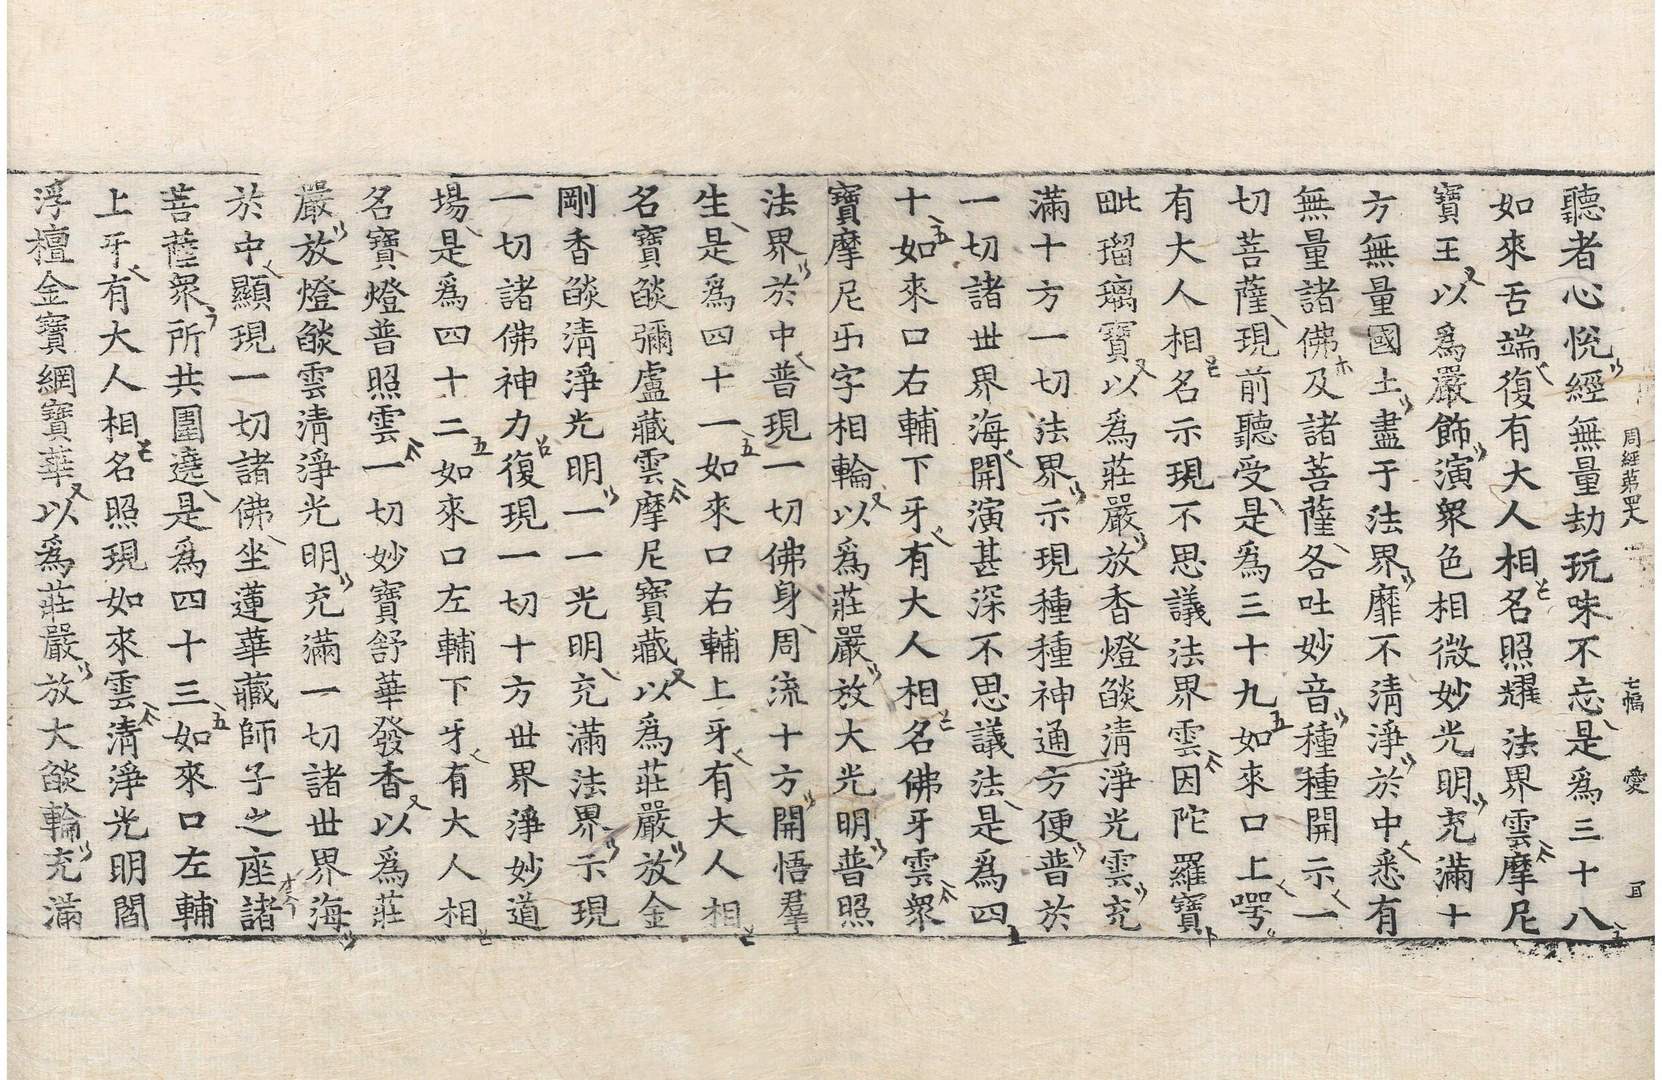 周經第四十八　七幅　愛
聽者心悅經無量劫玩味不忘是爲三十八
如來舌端復有大人相名照耀法界雲摩尼
寶王以爲嚴飾演衆色相微妙光明充滿十
方無量國土盡于法界靡不清淨於中悉有
無量諸佛及諸菩薩各吐妙音種種開示一
切菩薩現前聽受是爲三十九如來口上㗁
有大人相名示現不思議法界雲因陀羅寶
毗瑠璃寶以爲莊嚴放香燈燄清淨光雲充
滿十方一切法界示現種種神通方便普於
一切諸世界海開演甚深不思議法是爲四
十如來口右輔下牙有大人相名佛牙雲衆
寶摩尼卐字相輪以爲莊嚴放大光明普照
法界於中普現一切佛身周流十方開悟羣
生是爲四十一如來口右輔上牙有大人相
名寶燄彌盧藏雲摩尼寶藏以爲莊嚴放金
剛香燄清淨光明一一光明充滿法界示現
一切諸佛神力復現一切十方世界淨妙道
場是爲四十二如來口左輔下牙有大人相
名寶燈普照雲一切妙寶舒華發香以爲莊
嚴放燈燄雲清淨光明充滿一切諸世界海
於中顯現一切諸佛坐蓮華藏師子之座諸
菩薩衆所共圍遶是爲四十三如來口左輔
上牙有大人相名照現如來雲清淨光明閻
浮檀金寶網寶華以爲莊嚴放大燄輪充滿